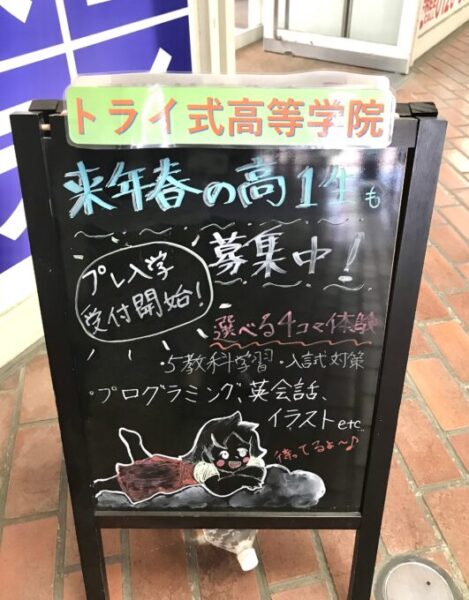 トライ式高等学院
来年春の高1生も
募集中!
プレ入学
受付開始!
選べる4コマ体験
・5教科学習・入試対策
・プログラミング、英会話、
イラストetc...
待ってるよ〜♪